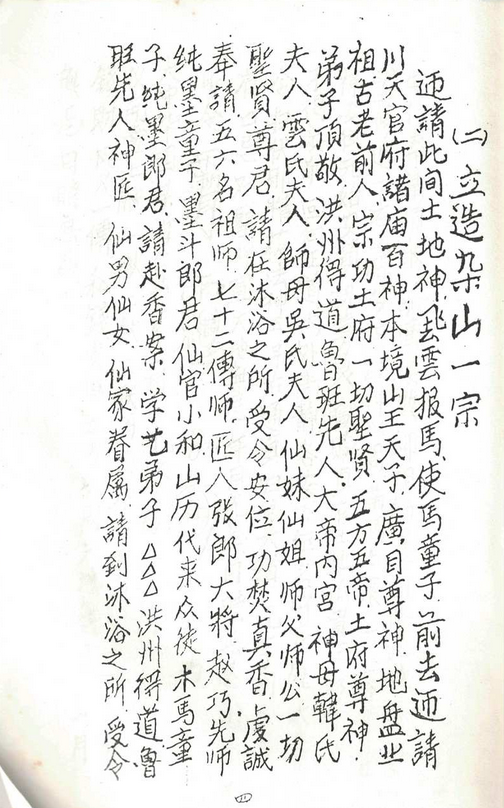 (二) 立造朵山一宗
迊請此间土地神飛雲报馬、使馬童子、前去迊請
川天官府諸庙百神本境山王天子、廣目尊神、地盘业
祖古老前人、宗功土府一切聖賢、五方五帝、土府尊神、
弟子頂敬、洪州得道魯班先人、大帝内宫神母韓氏
夫人、雲氏夫人、師母吳氏夫人、仙妹仙姐、师父师公一切
聖賢尊君、請在沐浴之所、受令安位、功焚真香、虔誠
奉請、五六名祖师、七十二傳师、匠人張郎大將、赵巧先师
纯墨童子、墨斗郎君、仙官小和山历代来众徒、木馬童
子、纯墨郎君、請赴香案、学艺弟子△△△洪州得道魯
班先人神匠、仙男仙女、仙家眷属、請到沐浴之所、受令
四